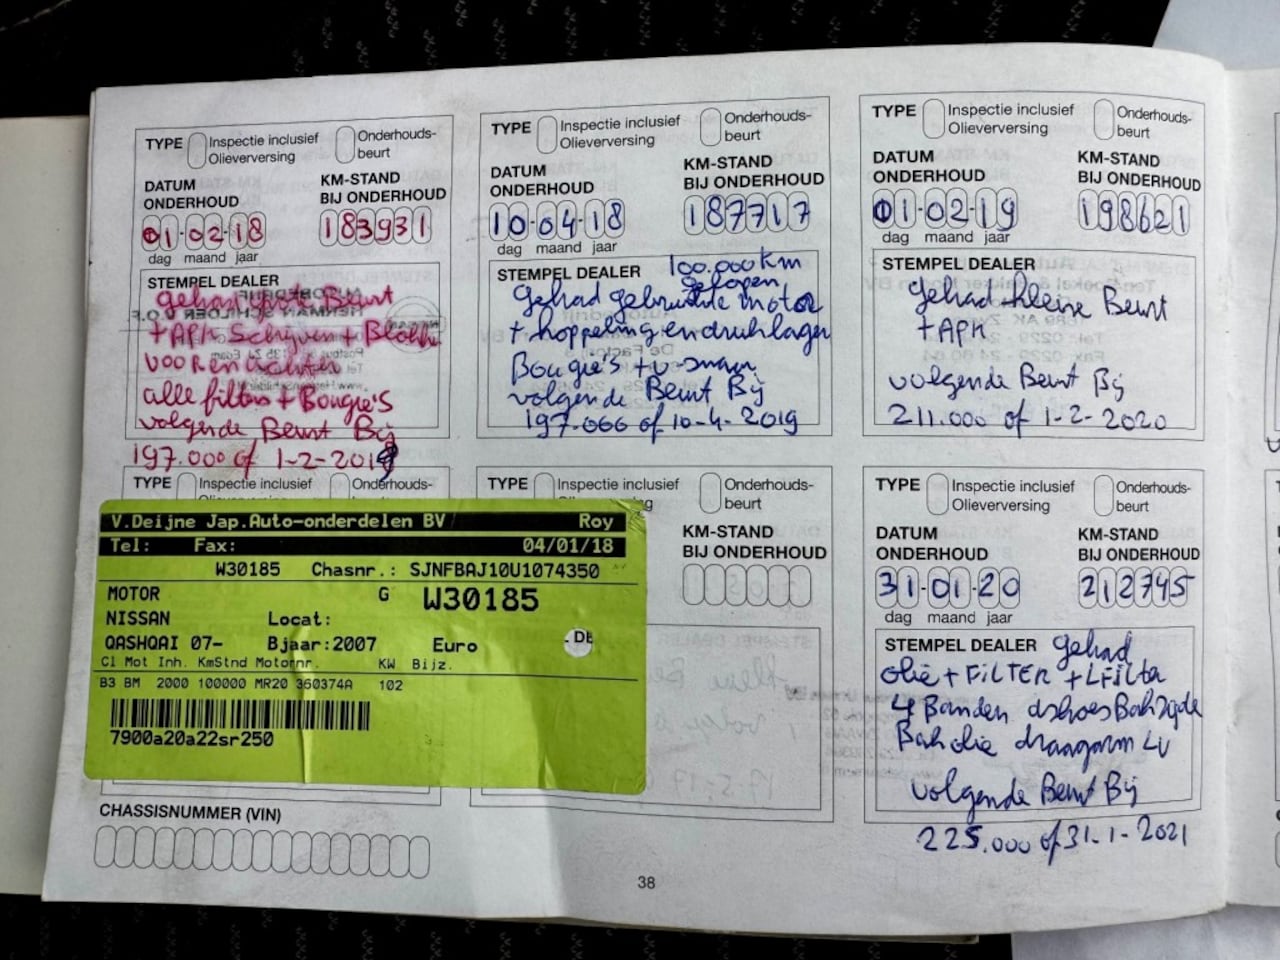 TYPE Inspectie inclusief Olieverversing Onderhouds-beurt
DATUM ONDERHOUD
KM-STAND BIJ ONDERHOUD
01-02-18
183931
dag maand jaar
STEMPEL DEALER
gehad Beurt
+ APK Schijven + Blokken
voor en achter
alle filters + Bougie's
volgende Beurt Bij
197.000 of 1-2-2019
TYPE Inspectie inclusief Olieverversing Onderhouds-beurt
DATUM ONDERHOUD
KM-STAND BIJ ONDERHOUD
10-04-18
187717
dag maand jaar
STEMPEL DEALER
100.000 km
gelopen
gehad gebruikte motor
+ koppeling en druklager
Bougie's + v-snaar
volgende Beurt Bij
197.000 of 10-4-2019
TYPE Inspectie inclusief Olieverversing Onderhouds-beurt
DATUM ONDERHOUD
KM-STAND BIJ ONDERHOUD
01-02-19
198621
dag maand jaar
STEMPEL DEALER
gehad kleine Beurt
+ APK
volgende Beurt Bij
211.000 of 1-2-2020
TYPE Inspectie inclusief Onderhouds-
V.Deijne Jap.Auto-onderdelen BV Roy
Tel: Fax: 04/01/18
W30185 Chasnr.: SJNFBAJ10U1074350
MOTOR G W30185
NISSAN Locat:
QASHQAI 07- Bjaar:2007 Euro DE
Cl Mot Inh. KmStnd Motornr. KW Bijz.
B3 BM 2000 100000 MR20 360374A 102
7900a20a22sr250
TYPE Inspectie inclusief Onderhouds-beurt
KM-STAND BIJ ONDERHOUD
TYPE Inspectie inclusief Olieverversing Onderhouds-beurt
DATUM ONDERHOUD
KM-STAND BIJ ONDERHOUD
31-01-20
212745
dag maand jaar
STEMPEL DEALER gehad
olie + FiLTER + LFilter
4 Banden
Bak olie draagarm LV
volgende Beurt Bij
225.000 of 31-1-2021
CHASSISNUMMER (VIN)
38